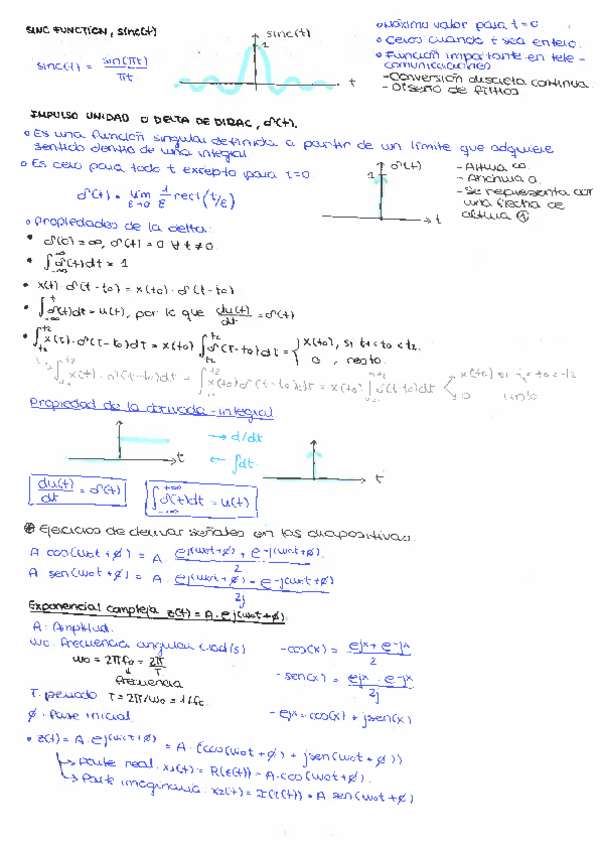 SINC FUNCTION, sinc(t)
sinc(t) = sin(πt)/πt
sinc(t)
1
t
o Máximo valor para t=0
o Ceros cuando t sea entero.
o Función importante en tele-
comunicaciones
- Conversión discreta continua.
- Diseño de filtros
IMPULSO UNIDAD O DELTA DE DIRAC, δ(t).
o Es una función singular definida a partir de un límite que adquiere
sentido dentro de una integral
o Es cero para todo t excepto para t=0
δ(t) = lim ε→0 1/ε rect(t/ε)
δ(t)
1
t
- Altura ∞
- Anchura 0.
- Se representa con
una flecha de
altura 1
o Propiedades de la delta:
• δ(0) = ∞, δ(t) = 0 ∀ t ≠ 0.
• ∫_{-∞}^{∞} δ(t)dt = 1
• x(t)·δ(t-t0) = x(t0)·δ(t-t0)
• ∫_{-∞}^{t} δ(t)dt = u(t), por lo que du(t)/dt = δ(t)
• ∫ x(τ)·δ(τ-t0)dτ = x(t0) ∫ δ(τ-t0)dτ = { x(t0), si t1<t0<t2.
0, resto.
Propiedad de la derivada-integral
→ d/dt
← ∫dt
t
t
du(t)/dt = δ(t)
∫_{-∞}^{+∞} δ(t)dt = u(t)
Ejercicios de derivar señales en las diapositivas.
A cos(ω0t+ϕ) = A · e^{j(ω0t+ϕ)} + e^{-j(ω0t+ϕ)} / 2
A sen(ω0t+ϕ) = A · e^{j(ω0t+ϕ)} - e^{-j(ω0t+ϕ)} / 2j
Exponencial compleja z(t) = A · e^{j(ω0t+ϕ)}
A: Amplitud.
ω0: frecuencia angular (rad/s)
ω0 = 2πf0 = 2π/T
frecuencia
T: periodo T = 2π/ω0 = 1/f0.
ϕ: Fase inicial.
- cos(x) = e^{jx} + e^{-jx} / 2
- sen(x) = e^{jx} - e^{-jx} / 2j
- e^{jx} = cos(x) + jsen(x)
• z(t) = A · e^{j(ω0t+ϕ)} = A · (cos(ω0t+ϕ) + jsen(ω0t+ϕ))
↳ Parte real: x1(t) = R(z(t)) = A · cos(ω0t+ϕ).
↳ Parte imaginaria: x2(t) = I(z(t)) = A sen(ω0t+ϕ)